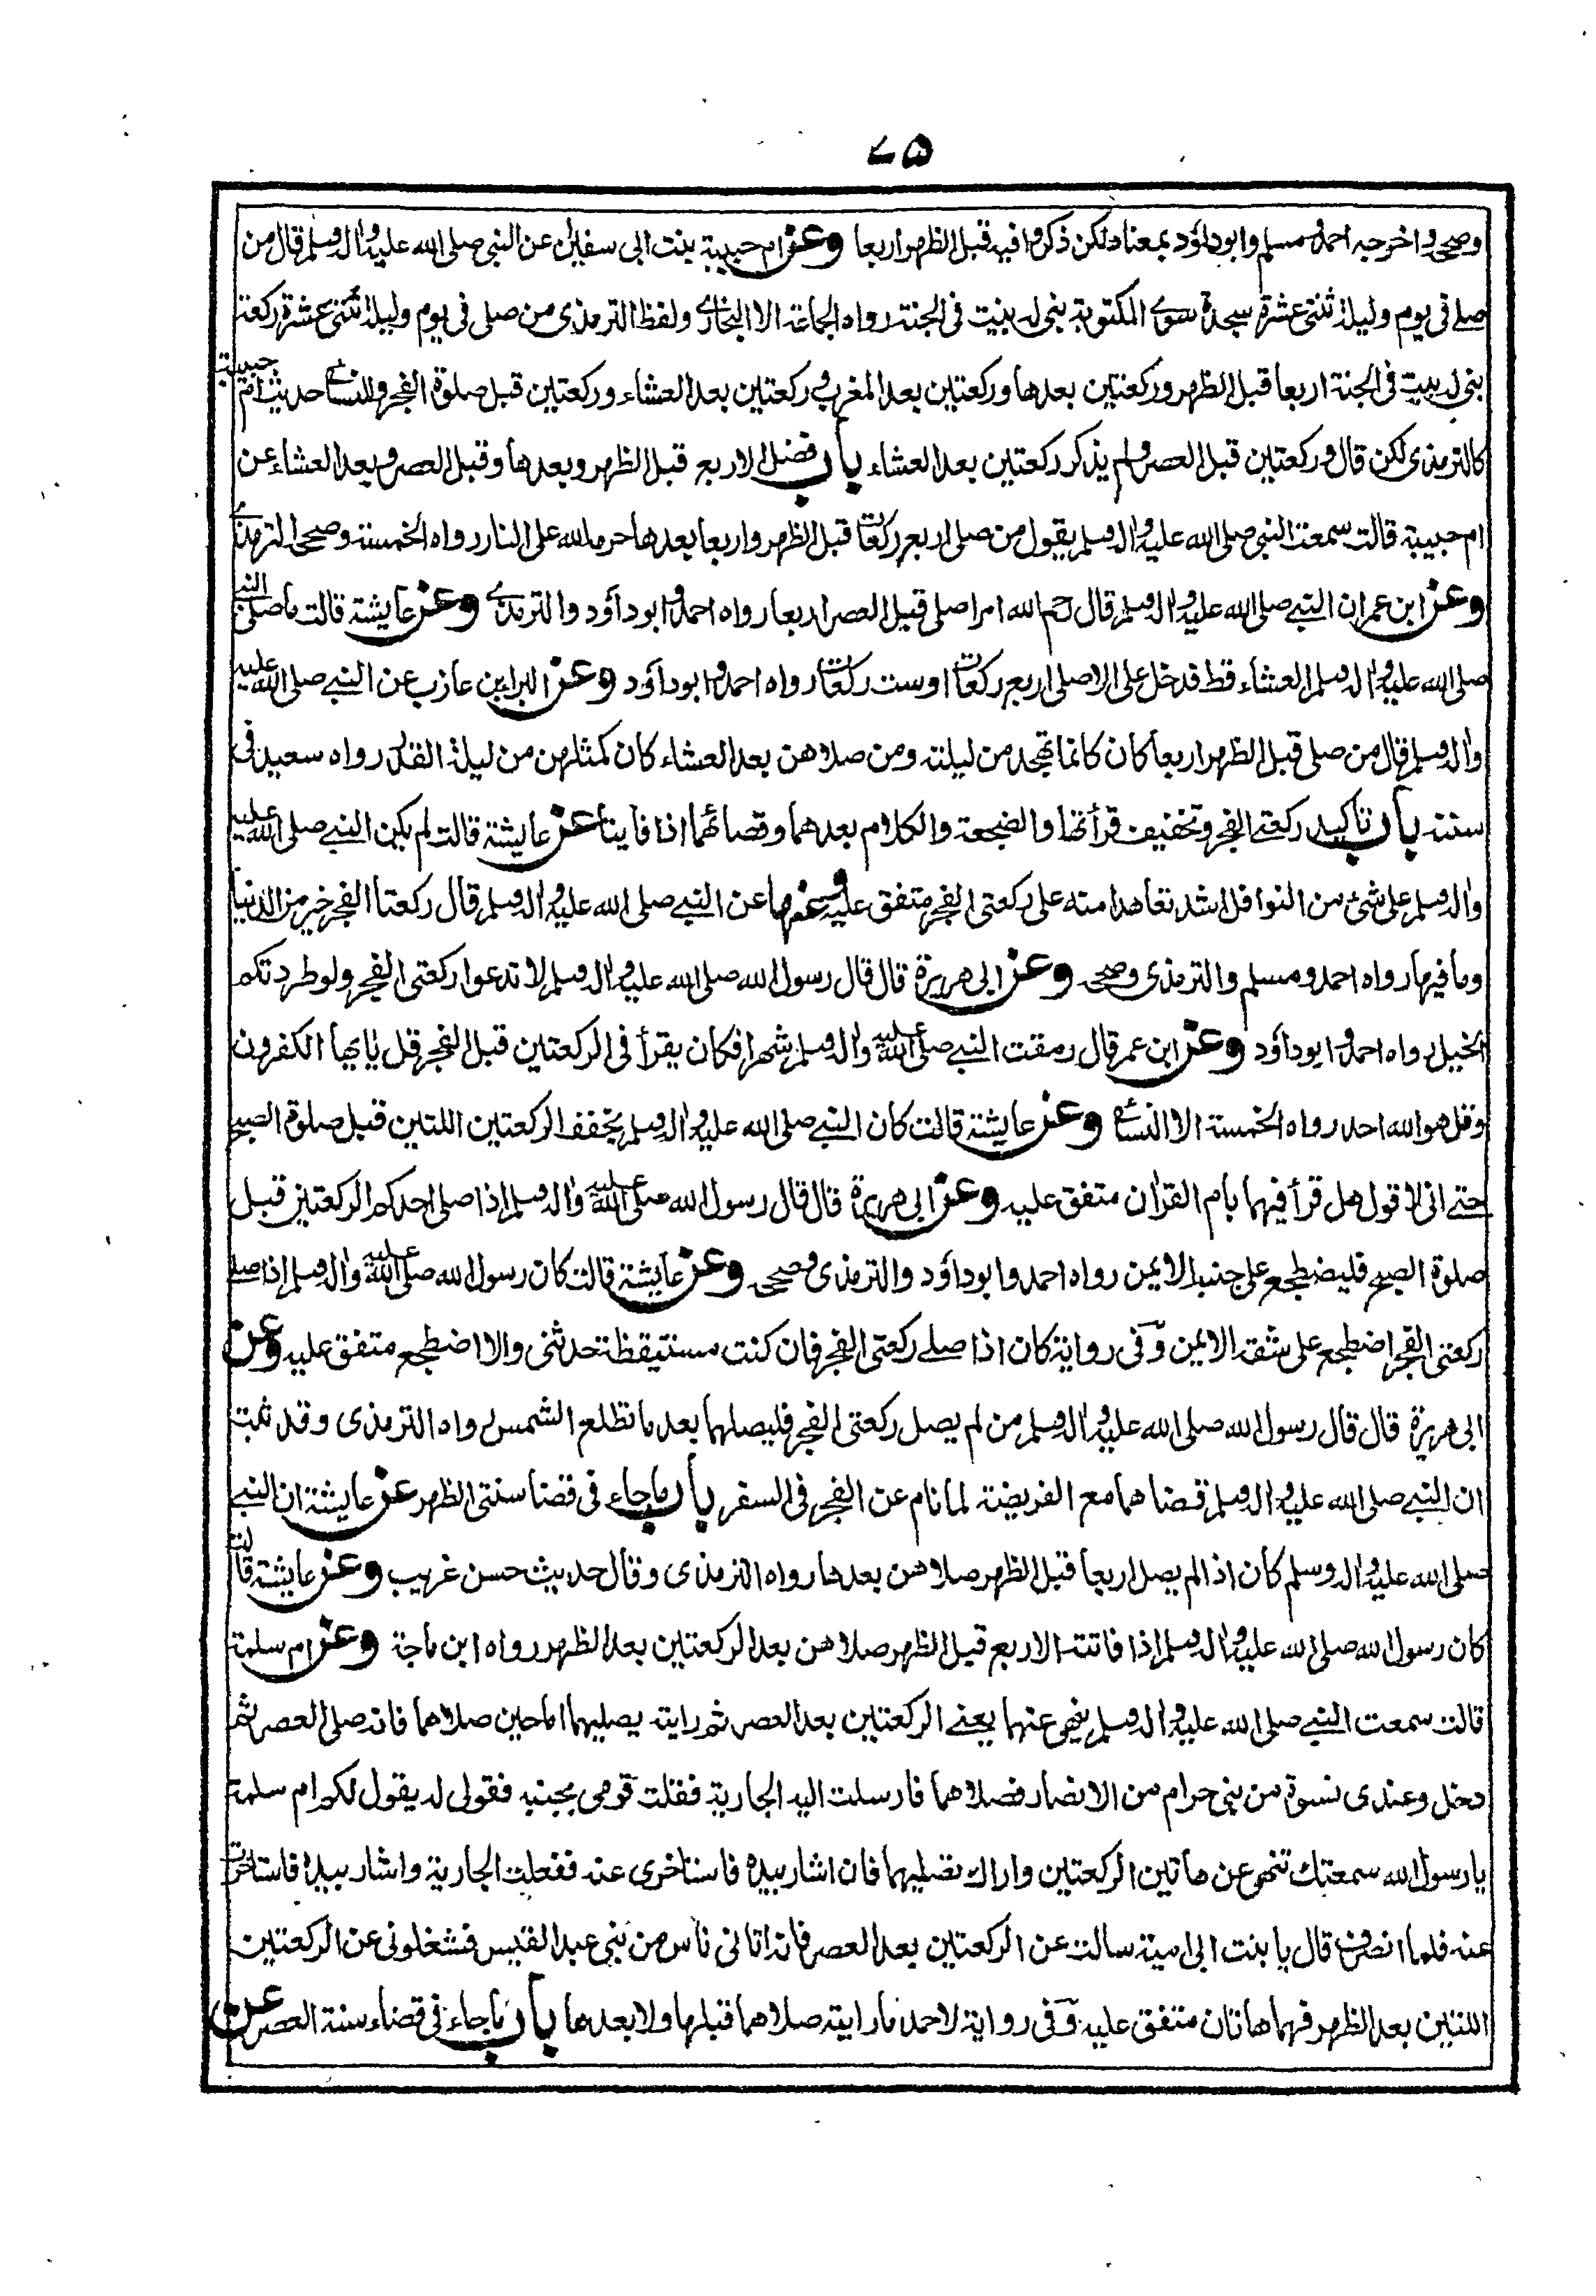 ٧٥
وصححه واخرجه احمد ومسلم وابوداؤد بمعناه لكن ذكروا فيه قبل الظهر اربعا وعن ام حبيبة بنت ابى سفين عن النبى صلى الله عليه واله وسلم قال من
صلے فى يوم وليلة ثنتى عشرة سجدة سوے المكتوبة بنى له بيت فى الجنة رواه الجماعة الا البخارے ولفظ الترمذى من صلى فى يوم وليلة ثنتى عشرة ركعة
بنى له بيت فى الجنة اربعا قبل الظهر وركعتين بعدها وركعتين بعد المغرب وركعتين بعد العشاء وركعتين قبل صلوة الفجر وللنسائے حديث ام حبيبة
كالترمذى لكن قال وركعتين قبل العصر ولم يذكر ركعتين بعد العشاء باب فضل الاربع قبل الظهر وبعدها وقبل العصر وبعد العشاء عن
ام حبيبة قالت سمعت النبى صلى الله عليه واله وسلم يقول من صلى اربع ركعات قبل الظهر واربعا بعدها حرمه الله على النار رواه الخمسة وصححه الترمذے
وعن ابن عمر ان النبے صلى الله عليه واله وسلم قال رحم الله امرا صلى قبل العصر اربعا رواه احمد وابو داؤد والترمذے وعن عايشة قالت ما صلى النبے
صلى الله عليه واله وسلم العشاء قط فدخل على الا صلى اربع ركعات اوست ركعات رواه احمد وابوداؤد وعن البراء بن عازب عن النبے صلى الله عليه
واله وسلم قال من صلى قبل الظهر اربعا كان كانما تهجد من ليلته ومن صلاهن بعد العشاء كان كمثلهن من ليلة القدر رواه سعيد فى
سننه باب تاكيد ركعتے الفجر وتخفيف قرأتها والضجعة والكلام بعدهما وقضائهما اذا فاتتا عن عايشة قالت لم يكن النبے صلى الله عليه
واله وسلم على شئ من النوافل اشد تعاهدا منه على ركعتى الفجر متفق عليه وعنها عن النبے صلى الله عليه واله وسلم قال ركعتا الفجر خير من الدنيا
وما فيها رواه احمد ومسلم والترمذى وصححه وعن ابى هريرة قال قال رسول الله صلى الله عليه واله وسلم لا تدعوا ركعتى الفجر ولو طردتكم
الخيل رواه احمد وابوداؤد وعن ابن عمر قال رمقت النبے صلى الله عليه واله وسلم شهرا فكان يقرأ فى الركعتين قبل الفجر قل يايها الكفرون
وقل هو الله احد رواه الخمسة الا النسائے وعن عايشة قالت كان النبے صلى الله عليه واله وسلم يخفف الركعتين اللتين قبل صلوة الصبح
حتے انى لاقول هل قرأ فيهما بام القران متفق عليه وعن ابى هريرة قال قال رسول الله صلى الله عليه واله وسلم اذا صلى احدكم الركعتين قبل
صلوة الصبح فليضطجع على جنبه الايمن رواه احمد وابوداؤد والترمذى وصححه وعن عايشة قالت كان رسول الله صلى الله عليه واله وسلم اذا صلے
ركعتى الفجر اضطجع على شقه الايمن وفى رواية كان اذا صلے ركعتى الفجر فان كنت مستيقظة حدثنى والا اضطجع متفق عليه وعن
ابى هريرة قال قال رسول الله صلى الله عليه واله وسلم من لم يصل ركعتى الفجر فليصلهما بعد ما تطلع الشمس رواه الترمذى وقد ثبت
ان النبے صلى الله عليه واله وسلم قضاهما مع الفريضة لما نام عن الفجر فى السفر باب ماجاء فى قضا سنتى الظهر عن عايشة ان النبے
صلى الله عليه واله وسلم كان اذا لم يصل اربعا قبل الظهر صلاهن بعدها رواه الترمذى وقال حديث حسن غريب وعن عايشة قالت
كان رسول الله صلى الله عليه واله وسلم اذا فاتته الاربع قبل الظهر صلاهن بعد الركعتين بعد الظهر رواه ابن ماجة وعن ام سلمة
قالت سمعت النبے صلى الله عليه واله وسلم ينهى عنهما يعنے الركعتين بعد العصر ثم رايته يصليهما اما حين صلاهما فانه صلى العصر ثم
دخل وعندى نسوة من بنى حرام من الانصار فصلاهما فارسلت اليه الجارية فقلت قومى بجنبه فقولى له يقول لك ام سلمة
يا رسول الله سمعتك تنهى عن هاتين الركعتين واراك تصليهما فان اشار بيده فاستاخرى عنه ففعلت الجارية واشار بيده فاستاخرت
عنه فلما انصرف قال يا بنت ابى امية سالت عن الركعتين بعد العصر فانه اتانى ناس من بنى عبد القيس فشغلونى عن الركعتين
اللتين بعد الظهر فهما هاتان متفق عليه وفى رواية لاحمد ما رايته صلاهما قبلها ولا بعدها باب ماجاء فى قضاء سنة العصر عن